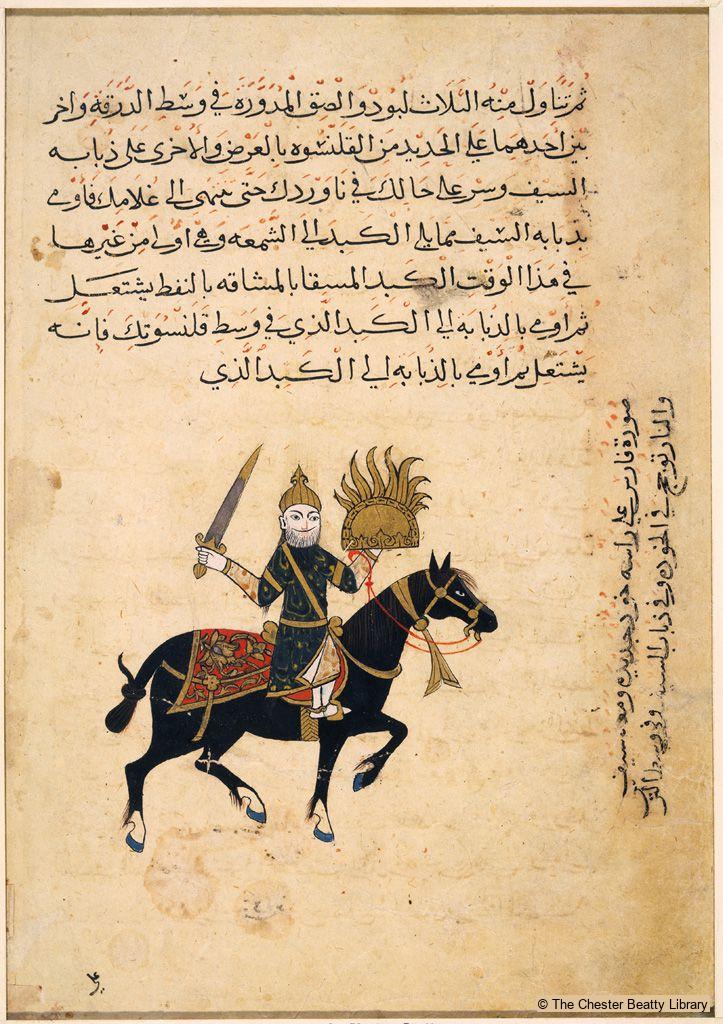 ثم تناول منه الثلاث لبود والصق المدورة في وسط الدرقة واخر
بين احدهما علي الحديد من القلنسوه بالعرض والاخرى على ذبابه
السيف وسر على حالك في ناوردك حتى تنتهى الى غلامك فاومي
بذبابه السيف مما يلي الكبد الي الشمعه وهي اولى من غيرها
في هذا الوقت الكبد المسقا بالمشاقه بالنفط يشتعل
ثم اومي بالذبابه الي الكبد الذي في وسط قلنسوتك فانه
يشتعل ثم اومي بالذبابه الي الكبد الذي
صورة فارس علي راسه خود حديد ومعه سيف
والنار توهج في الخوده وفي ذباب السيف وفي
علي
© The Chester Beatty Library